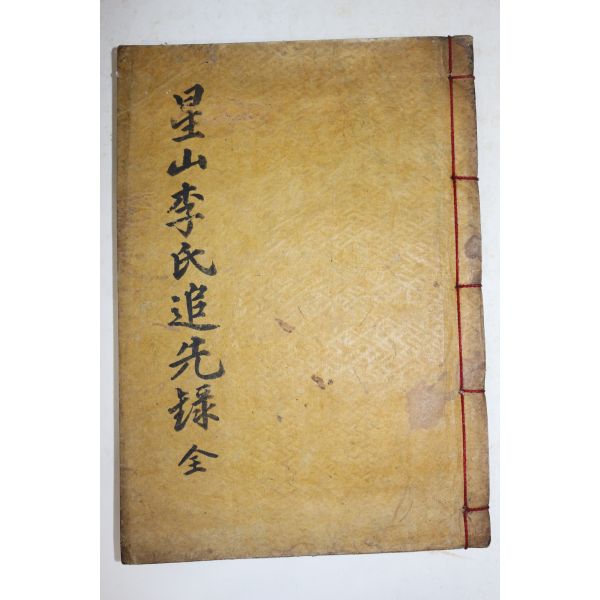 星山李氏追先錄 全